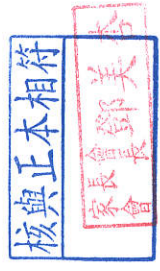 核與正本相符
家長會
會長鄒美